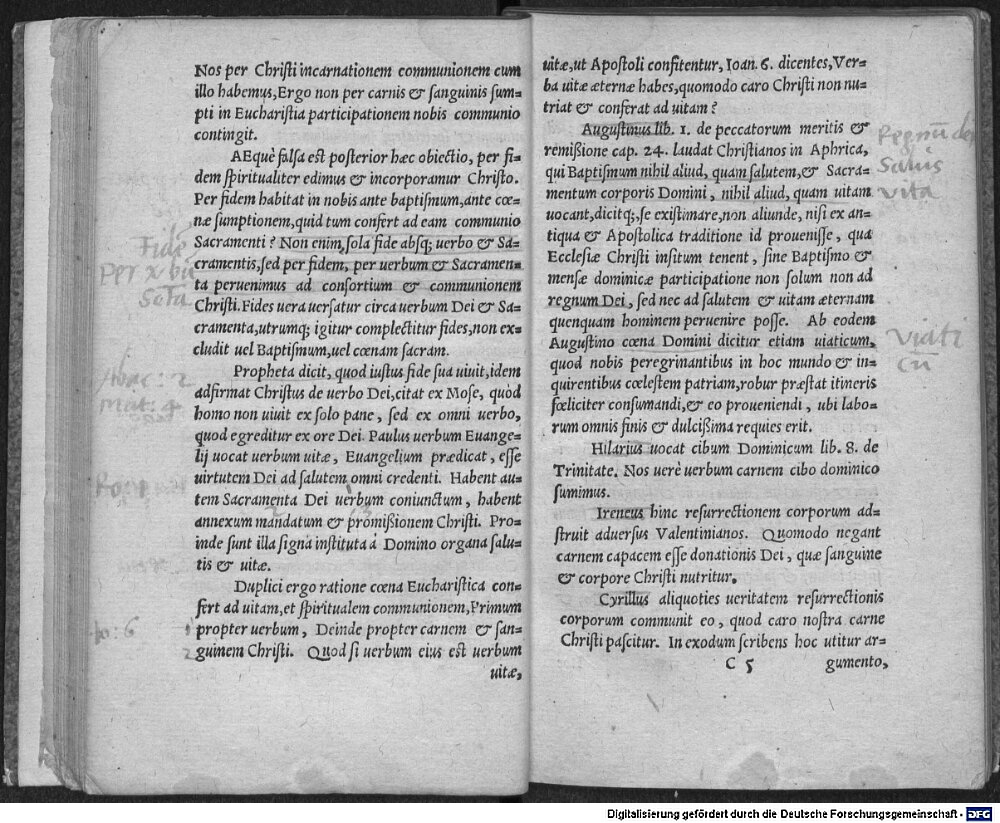 Nos per Christi incarnationem communionem cum
illo habemus, Ergo non per carnis & sanguinis sum-
pti in Eucharistia participationem nobis communio
contingit.
AEquè falsa est posterior hæc obiectio, per fi-
dem spiritualiter edimus & incorporamur Christo.
Per fidem habitat in nobis ante baptismum, ante cœ-
næ sumptionem, quid tum confert ad eam communio
Sacramenti? Non enim, sola fide absq; uerbo & Sa-
cramentis, sed per fidem, per uerbum & Sacramen-
ta peruenimus ad consortium & communionem
Christi. Fides uera uersatur circa uerbum Dei & Sa-
cramenta, utrumq; igitur complectitur fides, non ex-
cludit uel Baptismum, uel cœnam sacram.
Propheta dicit, quod iustus fide sua uiuit, idem
adfirmat Christus de uerbo Dei, citat ex Mose, quòd
homo non uiuit ex solo pane, sed ex omni uerbo,
quod egreditur ex ore Dei. Paulus uerbum Euange-
lij uocat uerbum uitæ, Euangelium prædicat, esse
uirtutem Dei ad salutem omni credenti. Habent au-
tem Sacramenta Dei uerbum coniunctum, habent
annexum mandatum & promißionem Christi. Pro-
inde sunt illa signa instituta á Domino organa salu-
tis & uitæ.
Duplici ergo ratione cœna Eucharistica con-
fert ad uitam, et spiritualem communionem, Primum
propter uerbum, Deinde propter carnem & san-
guinem Christi. Quod si uerbum eius est uerbum
uitæ,
Fides
per
Mat: 4
Jo: 6
1
2
uitæ, ut Apostoli confitentur, Ioan. 6. dicentes, Ver-
ba uitæ æternæ habes, quomodo caro Christi non nu-
triat & conferat ad uitam?
Augustinus lib. 1. de peccatorum meritis &
remißione cap. 24. laudat Christianos in Aphrica,
qui Baptismum nihil aliud, quam salutem, & Sacra-
mentum corporis Domini, nihil aliud, quam uitam
uocant, dicitq;, se existimare, non aliunde, nisi ex an-
tiqua & Apostolica traditione id prouenisse, qua
Ecclesiæ Christi insitum tenent, sine Baptismo &
mensæ dominicæ participatione non solum non ad
regnum Dei, sed nec ad salutem & uitam æternam
quenquam hominem peruenire posse. Ab eodem
Augustino cœna Domini dicitur etiam uiaticum,
quod nobis peregrinantibus in hoc mundo & in-
quirentibus cœlestem patriam, robur præstat itineris
fœliciter consumandi, & eo proueniendi, ubi labo-
rum omnis finis & dulcißima requies erit.
Hilarius uocat cibum Dominicum lib. 8. de
Trinitate. Nos uerè uerbum carnem cibo dominico
sumimus.
Ireneus hinc resurrectionem corporum ad-
struit aduersus Valentinianos. Quomodo negant
carnem capacem esse donationis Dei, quæ sanguine
& corpore Christi nutritur.
Cyrillus aliquoties ueritatem resurrectionis
corporum communit eo, quod caro nostra carne
Christi pascitur. In exodum scribens hoc utitur ar-
C 5 gumento,
Regnū dei
Salus
vita
Viati
cū
Digitalisierung gefördert durch die Deutsche Forschungsgemeinschaft - DFG